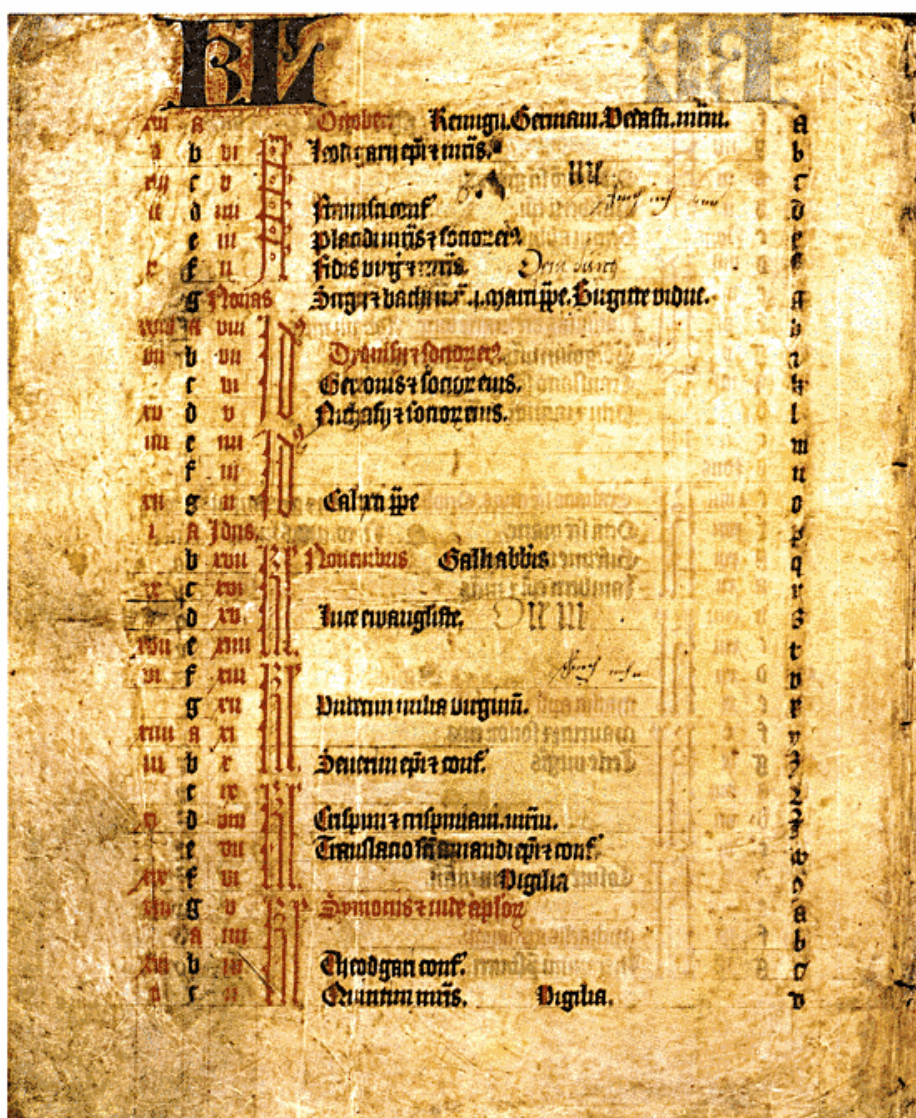 KL
xvi A October. Remigii. Germani. Vedasti. mrm.
v b vi Leodegarii epi ⁊ mris.
xiii c v
ii d iiii Francisci conf. d
e iii Placidi mris ⁊ socior eius e
x f ii Fidis virg ⁊ mris.
g Nonas Sergii ⁊ bachi mr. Marci ppe. Birgitte vidue. g
xviii A viii h
vii b vii Dyonisii ⁊ socior eius
c vi Gereonis ⁊ socior eius. k
xv d v Nichasii ⁊ socior eius. l
iiii e iiii m
f iii n
xii g ii Calixti ppe o
i A Idus. p
b xvii kl Nouembris Galli abbis q
ix c xvi r
d xv Luce ewangliste. s
xvii e xiiii t
vi f xiii v
g xii Undecim milia virginu. x
xiiii A xi y
iii b x Seuerini epi ⁊ conf. z
c ix
xi d viii Crispini ⁊ crispiniani. mrm.
e vii Translacio sci amandi epi ⁊ conf
xix f vi Vigilia
viii g v Symonis ⁊ iude aplor a
A iiii b
xvi b iii Theodgari conf. c
v c ii Quintini mris. Vigilia. d